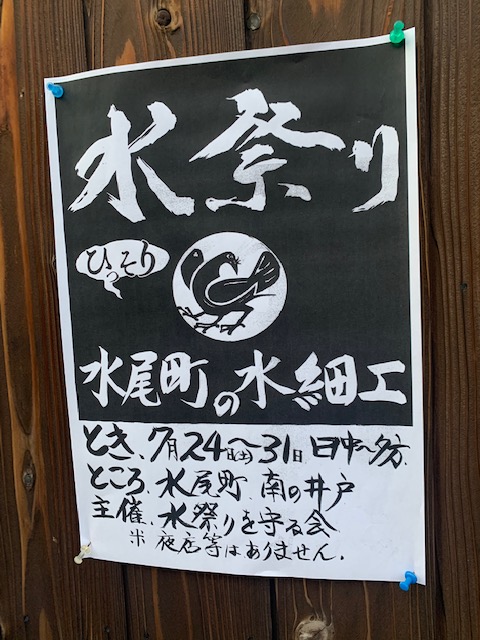 水祭り
ひっそり
水尾町の水細工
とき、7月24日(土)〜31日 日中〜夕方、
ところ、水尾町 南の井戸
主催、水祭りを守る会
※ 夜店等はありません.